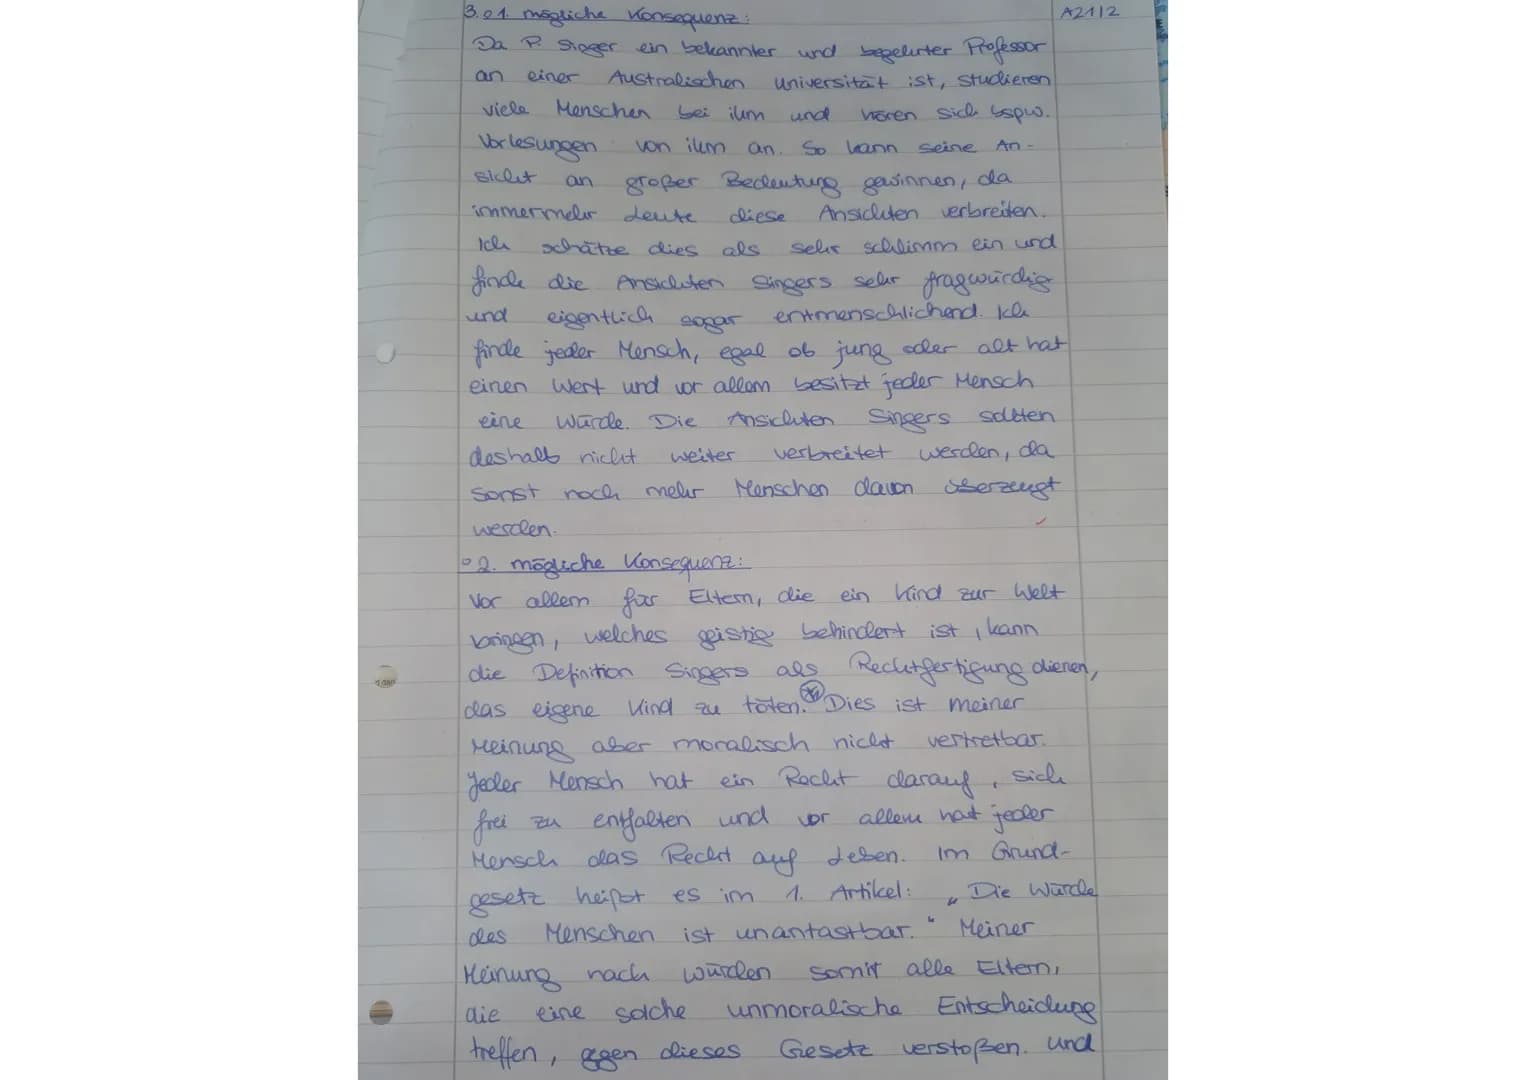 3. o 1. mögliche Konsequenz:
A2112
Da P. Singer ein bekannter und begehrter Professor
an einer Australischen Universität ist, studieren
viele Menschen bei ihm und hören sich bspw.
Vorlesungen von ihm an. So kann seine An-
sicht an großer Bedeutung gewinnen, da
immermehr Leute diese Ansichten verbreiten.
Ich schätze dies als sehr schlimm ein und
finde die Ansichten Singers sehr fragwürdig
und eigentlich sogar entmenschlichend. Ich
finde jeder Mensch, egal ob jung oder alt hat
einen Wert und vor allem besitzt jeder Mensch
eine Würde. Die Ansichten Singers sollten
deshalb nicht weiter verbreitet werden, da
sonst noch mehr Menschen davon überzeugt
werden.
o 2. mögliche Konsequenz:
Vor allem für Eltern, die ein Kind zur Welt
bringen, welches geistig behindert ist, kann
die Definition Singers als Rechtfertigung dienen,
das eigene Kind zu töten. Dies ist meiner
Meinung aber moralisch nicht vertretbar.
Jeder Mensch hat ein Recht darauf, sich
frei zu entfalten und vor allem hat jeder
Mensch das Recht auf Leben. Im Grund-
gesetz heißt es im 1. Artikel: „Die Würde
des Menschen ist unantastbar." Meiner
Meinung nach würden somit alle Eltern,
die eine solche unmoralische Entscheidung
treffen, gegen dieses Gesetz verstoßen. Und